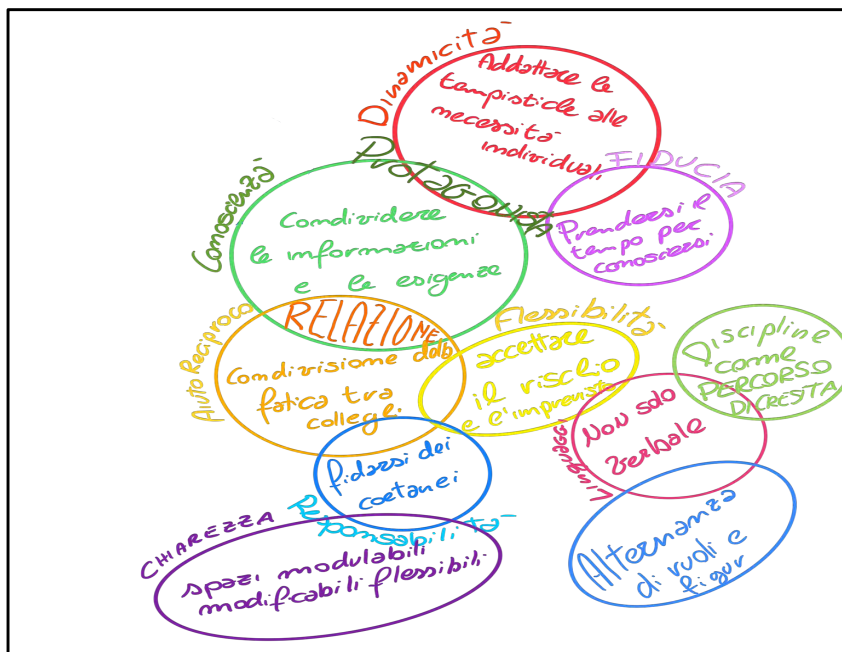 Dinamicità
Addattare le
tempistiche alle
necessità
individuali
Protagonista
FIDUCIA
Prendersi il
tempo per
conoscersi
Conoscienza
Condividere
le informazioni
e le esigenze
Aiuto Reciproco
RELAZIONE
Condivisione della
fatica tra
colleghi
Flessibilità
accettare
il rischio
e l'imprevisto
Discipline
come
PERCORSO
DI CRESTA
Linguaggi
Non solo
verbale
fidarsi dei
coetanei
Responsabilità
CHIAREZZA
spazi modulabili
modificabili flessibili
Alternanza
di ruoli e
figur